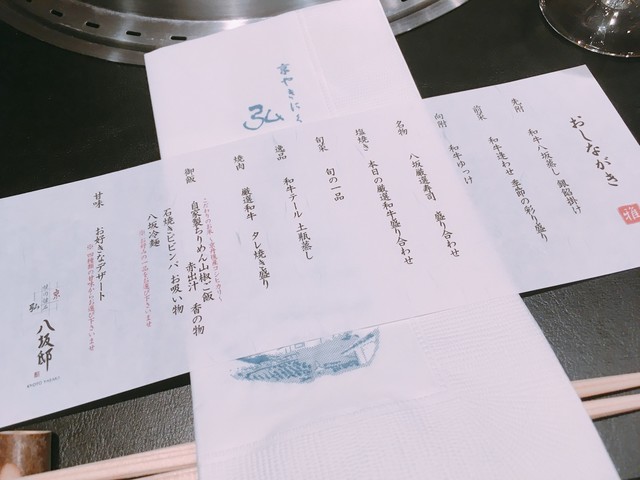 おしながき
雅
先附 和牛八坂蒸し 銀餡掛け
前菜 和牛洗わせ 季節の彩り盛り
向附 和牛ゆっけ
名物 八坂厳選寿司 盛り合わせ
塩焼き 本日の厳選和牛盛り合わせ
旬菜 旬の一品
逸品 和牛テール土瓶蒸し
焼肉 厳選和牛 タレ焼き盛り
御飯
自家製ちりめん山椒ご飯
赤出汁 香の物
石焼きビビンバ お吸い物
八坂冷麺
※お好みの一品をお選び下さいませ
甘味 お好きなデザート
八坂邸
弘
京やきにく
弘